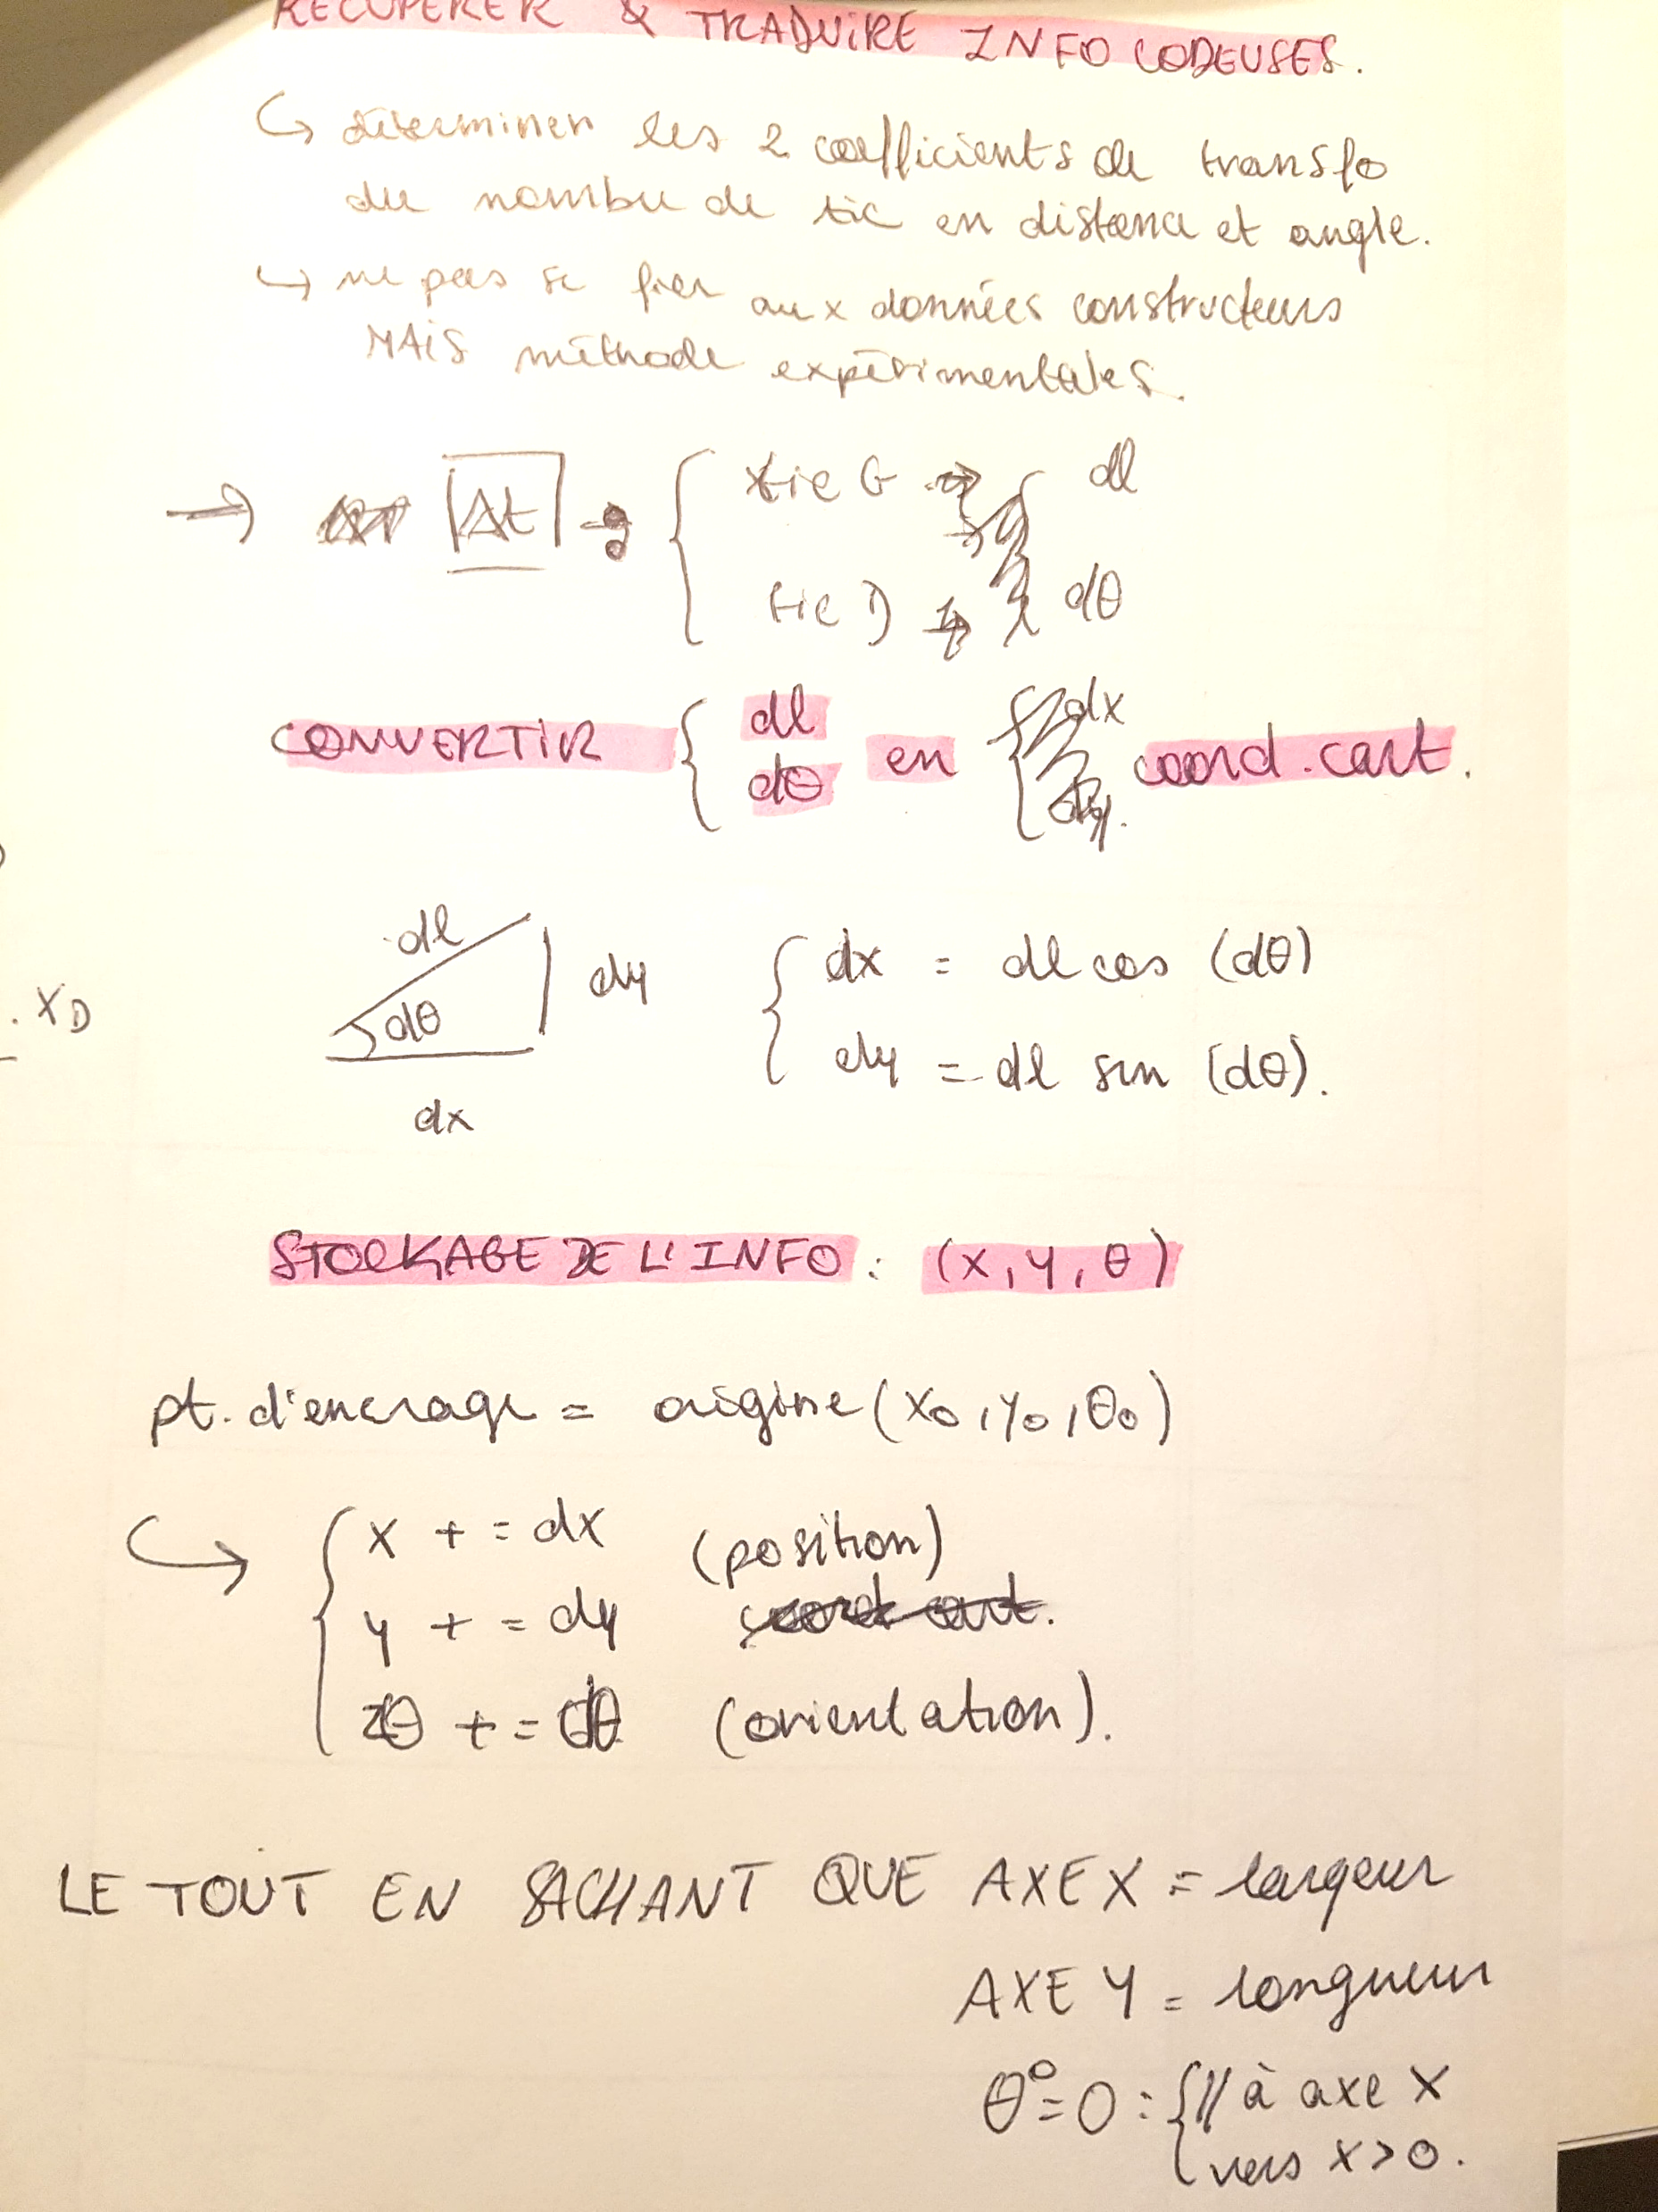 RECUPERER & TRADUIRE INFO CODEUSES.
↳ déterminer les 2 coefficients de transfo
du nombre de tic en distance et angle.
↳ ne pas se fier aux données constructeurs
MAIS méthode expérimentales.
→ Δt : { tic G dl
tic D dθ
CONVERTIR { dl dθ en coord. cart.
dl
dθ
dy
dx
{ dx = dl cos (dθ)
dy = dl sin (dθ).
. XD
STOCKAGE DE L'INFO : (x, y, θ)
pt. d'encrage = origine (x0, y0, θ0)
↳ { x += dx (position)
y += dy
θ += dθ (orientation).
LE TOUT EN SACHANT QUE AXE X = largeur
AXE Y = longueur
θ°=0 : { // à axe X
vers X>0.